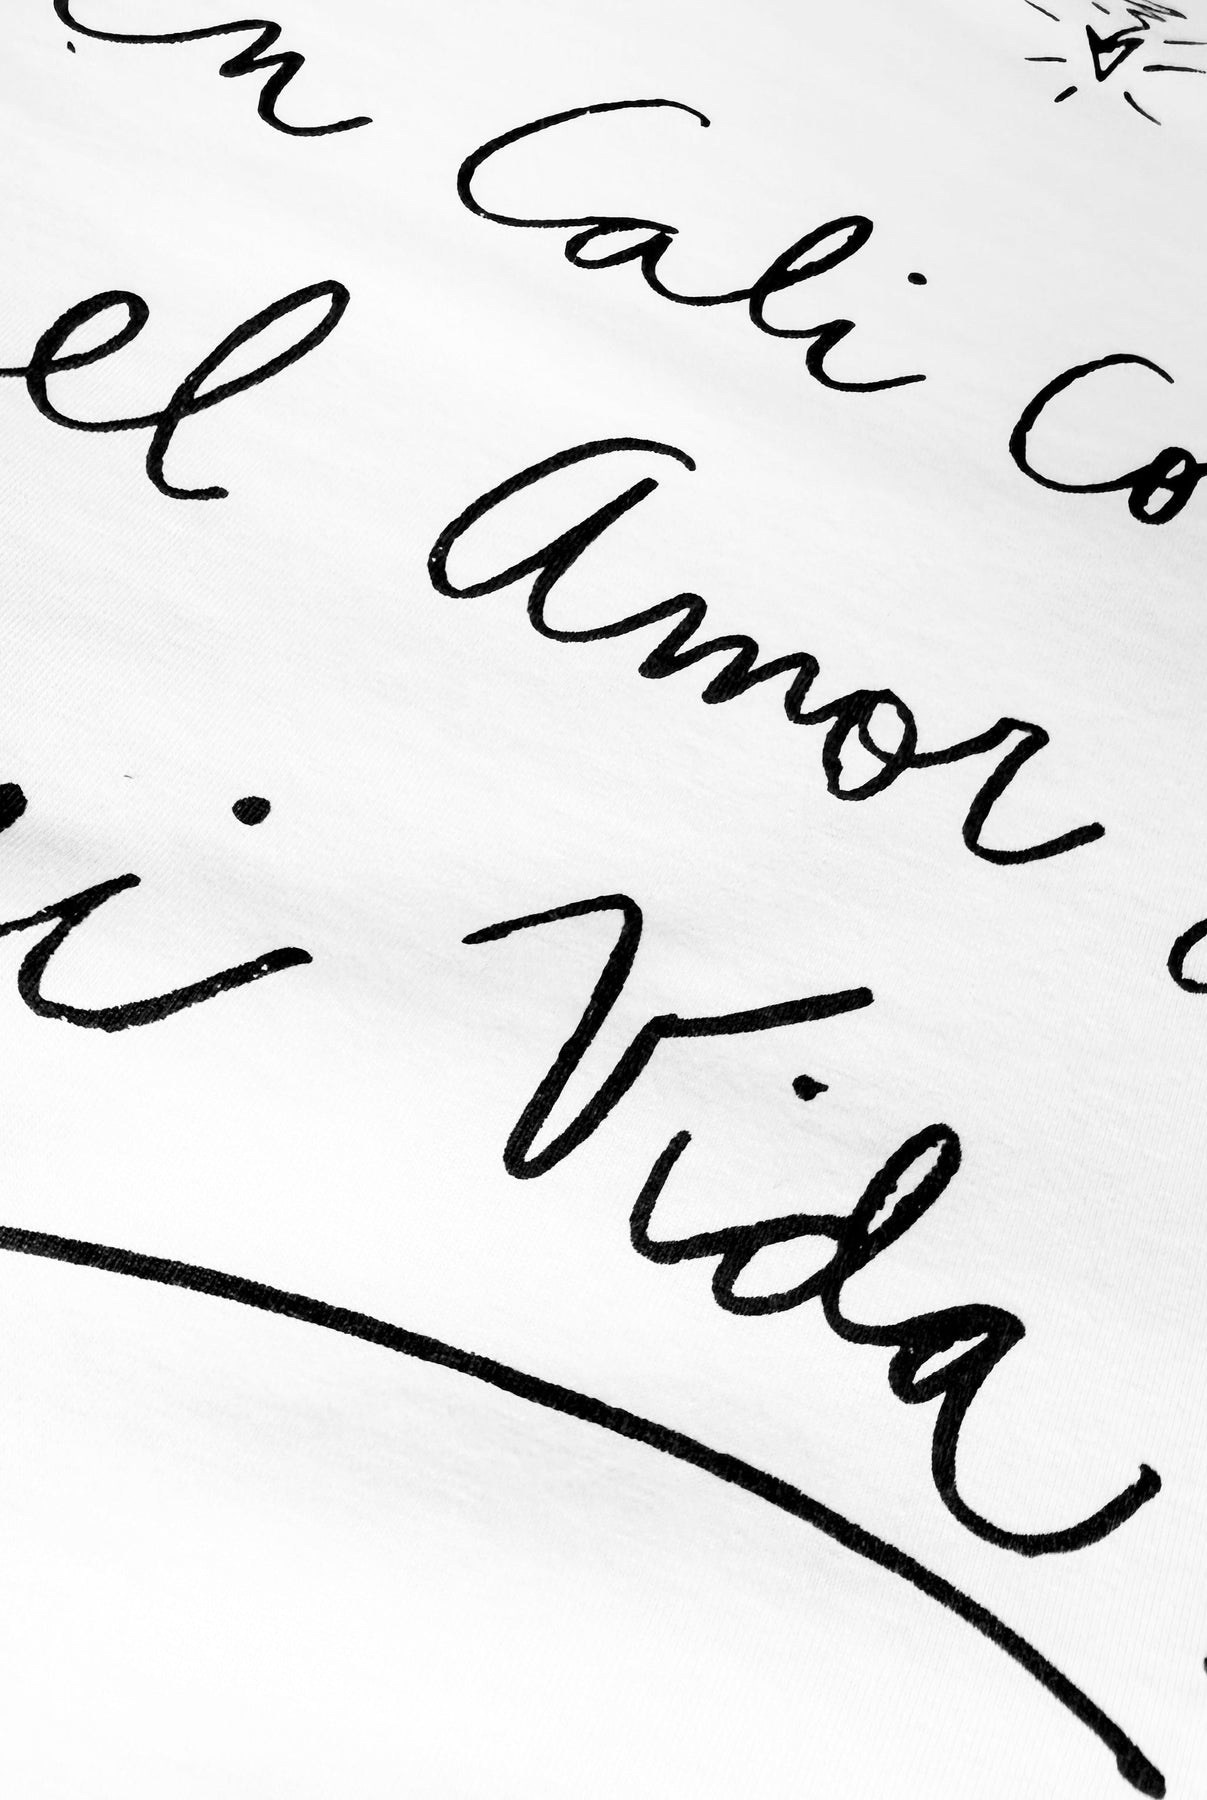 in Cali Co
el Amor
i Vida